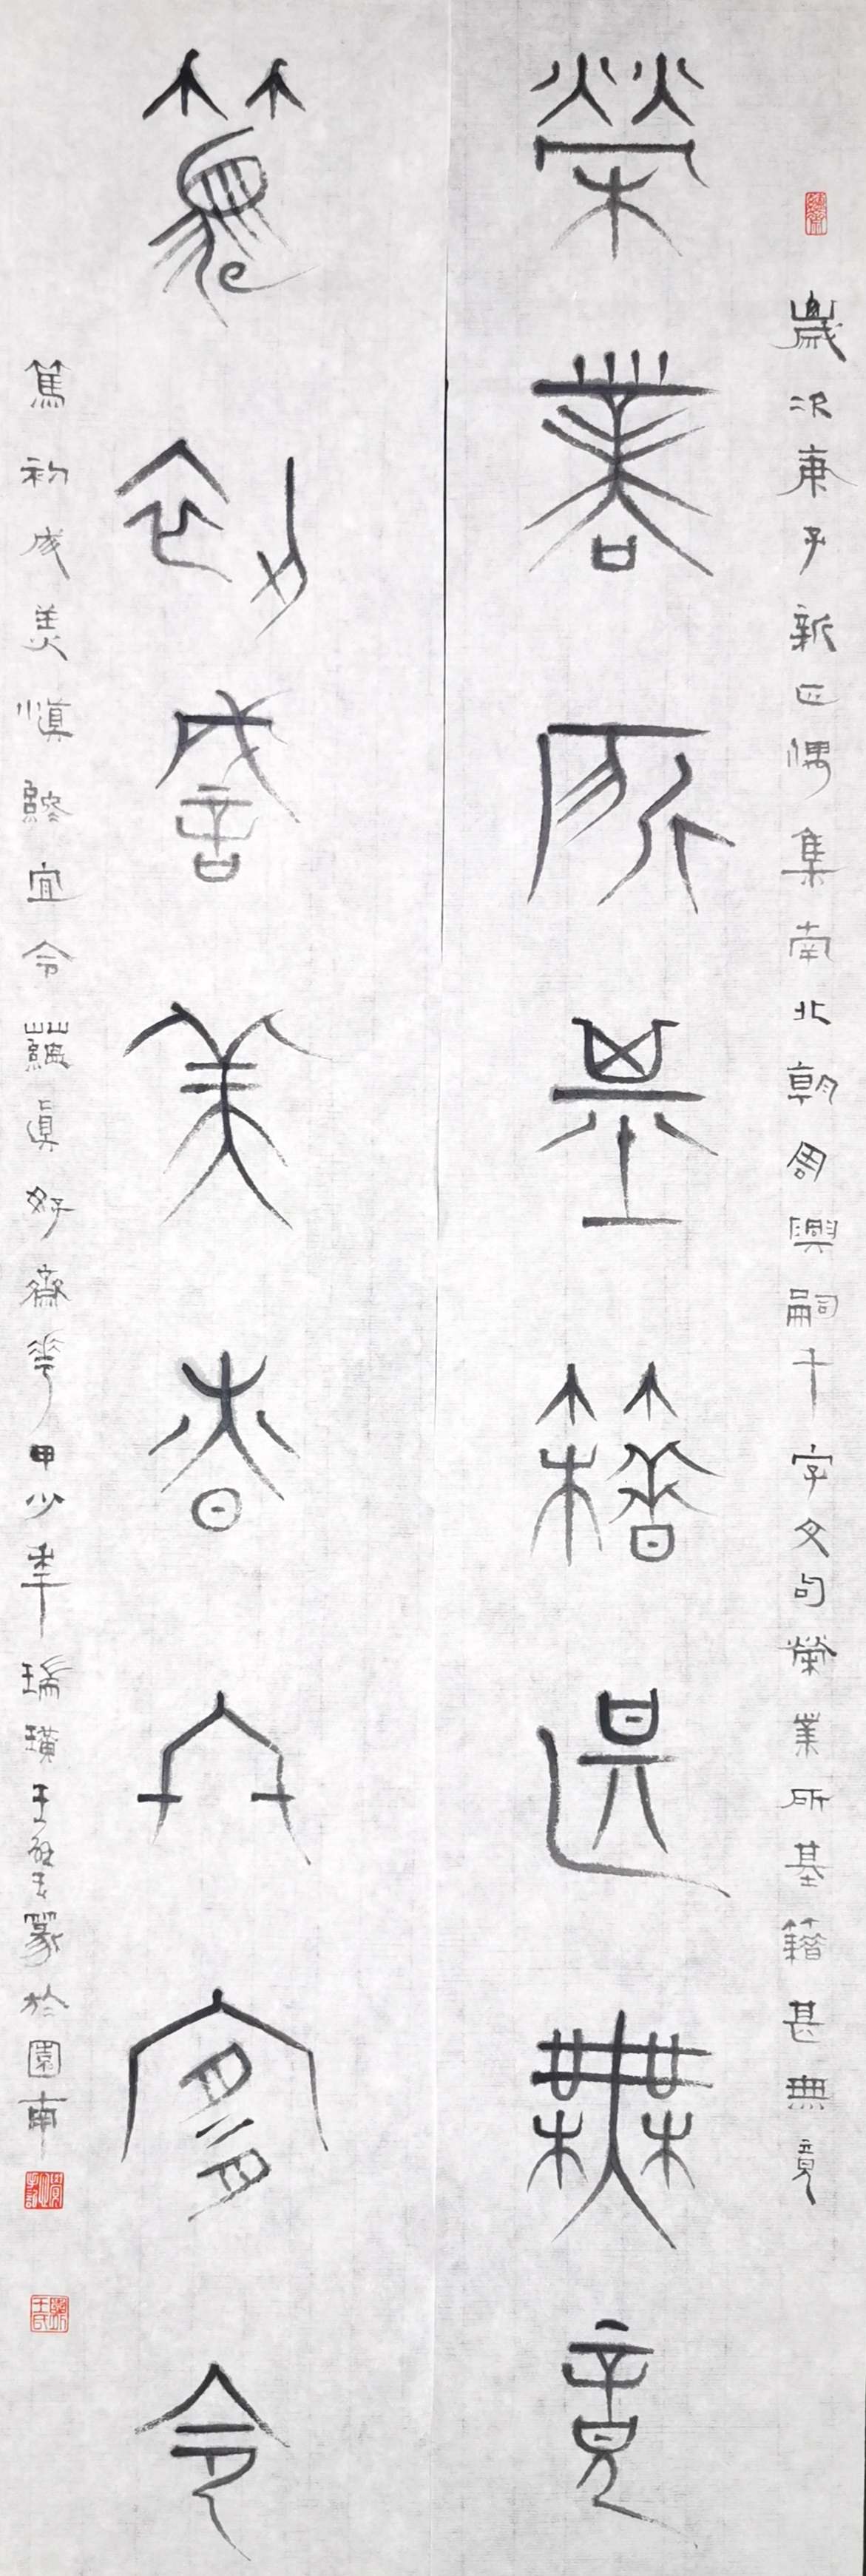 歲次庚子新正偶集南北朝周興嗣千字文句榮業所基籍甚無竟
榮業所基籍甚無竟
篤初誠美慎終宜令
篤初成美慎終宜令蘊真好齋華甲少年瑞璜王篆於園南